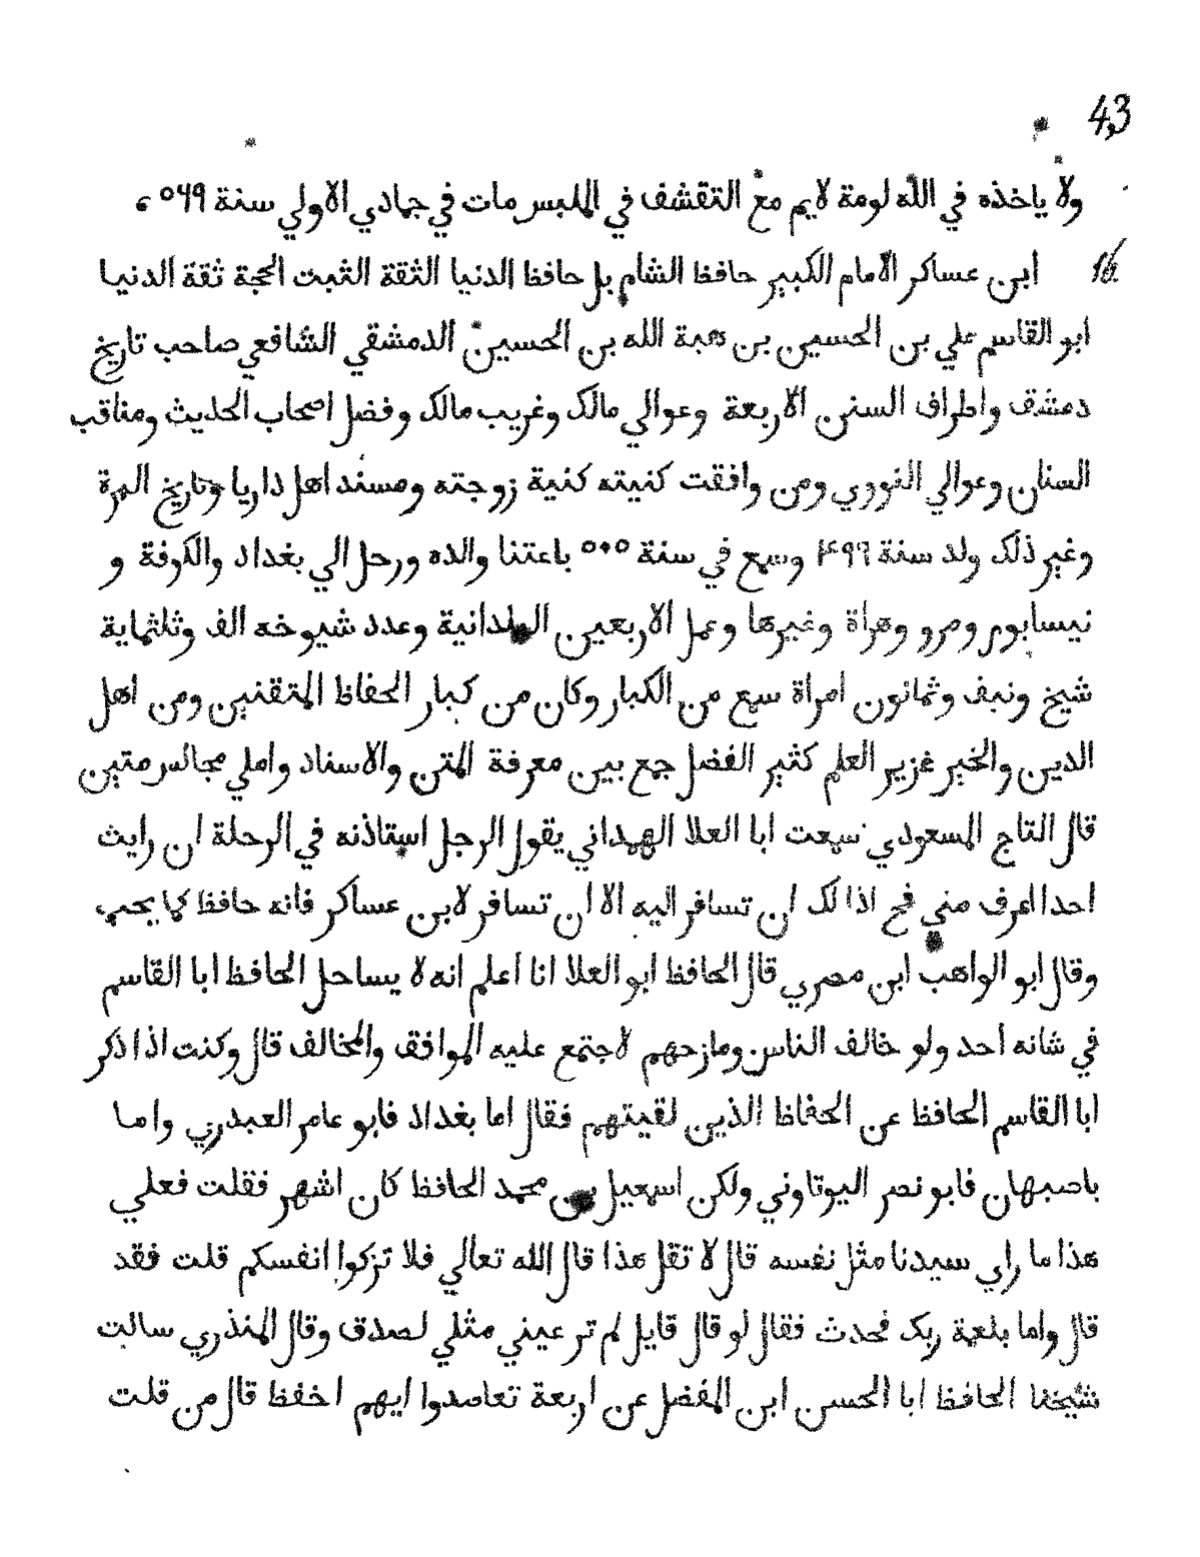 43
ولا ياخذه في الله لومة لايم مع التقشف في الملبس مات في جمادي الاولي سنة ٥٤٩ ،
16 ابن عساكر الامام الكبير حافظ الشام بل حافظ الدنيا الثقة الثبت الحجة ثقة الدنيا
ابو القاسم علي بن الحسين بن هبة الله بن الحسين الدمشقي الشافعي صاحب تاريخ
دمشق واطراف السنن الاربعة وعوالي مالك وغريب مالك وفضل اصحاب الحديث ومناقب
السنان وعوالي الثوري ومن وافقت كنيته كنية زوجته ومسند اهل داريا وتاريخ المزة
وغير ذلك ولد سنة ٤٩٩ وسمع في سنة ٥٠٥ باعتنا والده ورحل الي بغداد والكوفة و
نيسابور ومرو وهراة وغيرها وعمل الاربعين البلدانية وعدد شيوخه الف وثلثماية
شيخ ونيف وثمانون امراة سمع من الكبار وكان من كبار الحفاظ المتقنين ومن اهل
الدين والخير غزير العلم كثير الفضل جمع بين معرفة المتن والاسناد واملي مجالس متين
قال التاج المسعودي سمعت ابا العلا الهمداني يقول الرجل استاذنه في الرحلة ان رايت
احدا اعرف مني فح اذا لك ان تسافر اليه الا ان تسافر لابن عساكر فانه حافظ كما يجب
وقال ابو الواهب ابن مصري قال الحافظ ابو العلا انا اعلم انه لا يساحل الحافظ ابا القاسم
في شانه احد ولو خالف الناس ومازحهم لاجتمع عليه الموافق والمخالف قال وكنت اذا ذكر
ابا القاسم الحافظ عن الحفاظ الذين لقيتهم فقال اما بغداد فابو عامر العبدري واما
باصبهان فابو نصر اليوتاوني ولكن اسمعيل بن محمد الحافظ كان اشهر فقلت فعلي
هذا ما راي سيدنا مثل نفسه قال لا تقل هذا قال الله تعالي فلا تزكوا انفسكم قلت فقد
قال واما بلعمة ربك فحدث فقال لو قال قايل لم تر عيني مثلي لصدق وقال المنذري سالت
شيخنا الحافظ ابا الحسن ابن المفضل عن اربعة تعاصدوا ايهم اخفظ قال من قلت